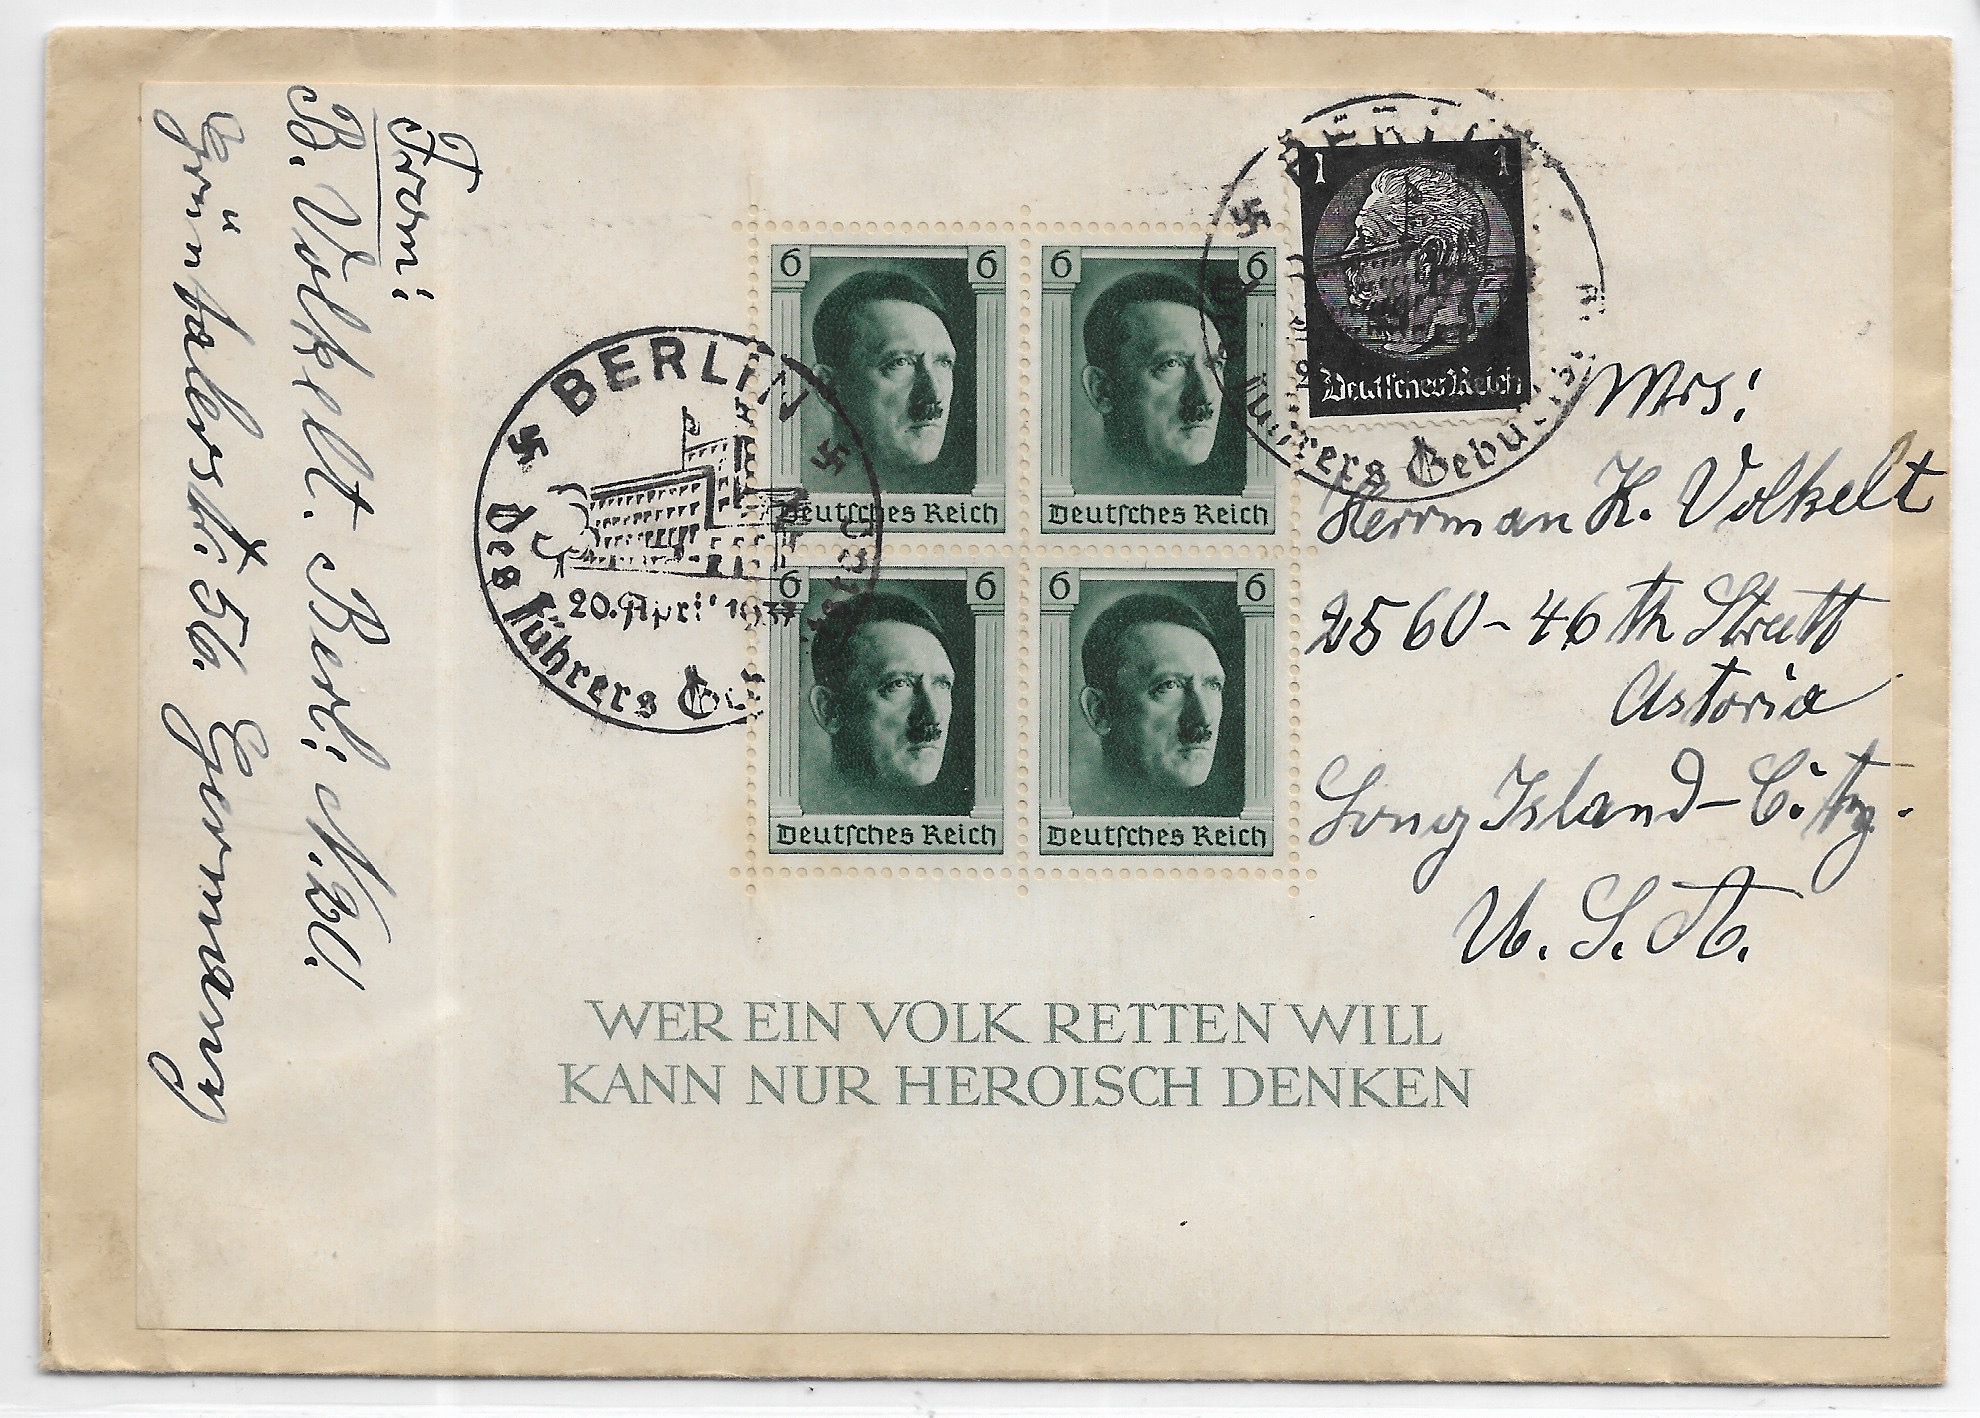 From:
B. Volkelt. Berlin N. 20.
Grüntalerstr. 56. Germany
BERLIN
20. April 1937
Des Führers Geburtstag
BERLIN
Führers Gebu
1 1
Deutsches Reich
6 6
Deutsches Reich
6 6
Deutsches Reich
6 6
Deutsches Reich
6 6
Deutsches Reich
Mrs:
Herrman K. Volkelt
2560-46th Street
Astoria
Long Island-City.
U. S. A.
WER EIN VOLK RETTEN WILL
KANN NUR HEROISCH DENKEN